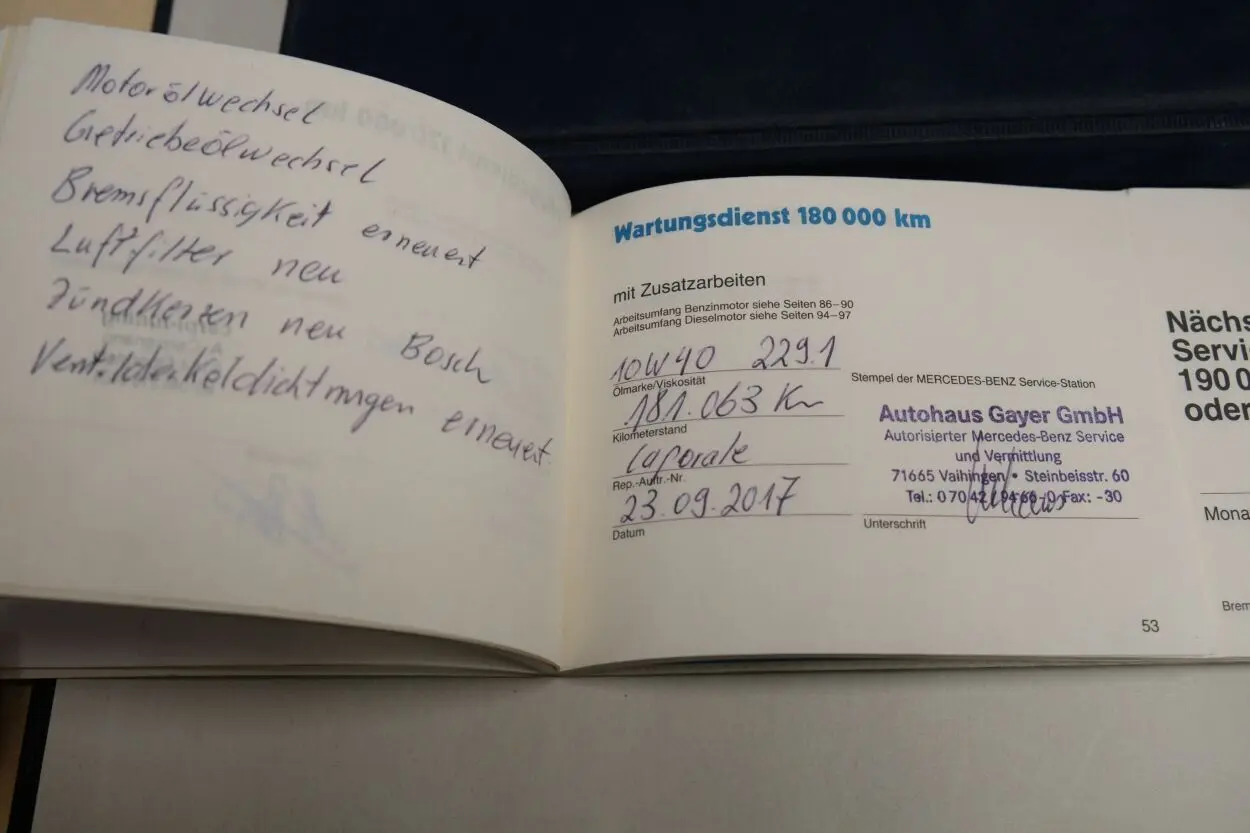 Motorölwechsel
Getriebeölwechsel
Bremsflüssigkeit erneuert
Luftfilter neu
Zündkerzen neu Bosch
Ventildeckeldichtungen erneuert
Wartungsdienst 180 000 km
mit Zusatzarbeiten
Arbeitsumfang Benzinmotor siehe Seiten 86–90
Arbeitsumfang Dieselmotor siehe Seiten 94–97
10W40 229.1
Ölmarke/Viskosität
181.063 Km
Kilometerstand
Laporale
Rep.-Auftr.-Nr.
23.09.2017
Datum
Stempel der MERCEDES-BENZ Service-Station
Autohaus Gayer GmbH
Autorisierter Mercedes-Benz Service
und Vermittlung
71665 Vaihingen • Steinbeisstr. 60
Tel.: 0 70 42 Fax: -30
Unterschrift
53
Nächs
Servi
190 0
oder
Mona
Brem